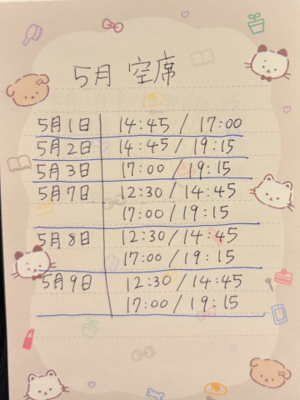 5月 空席
5月1日 14:45 / 17:00
5月2日 14:45 / 19:15
5月3日 17:00 / 19:15
5月7日 12:30 / 14:45
17:00 / 19:15
5月8日 12:30 / 14:45
17:00 / 19:15
5月9日 12:30 / 14:45
17:00 / 19:15